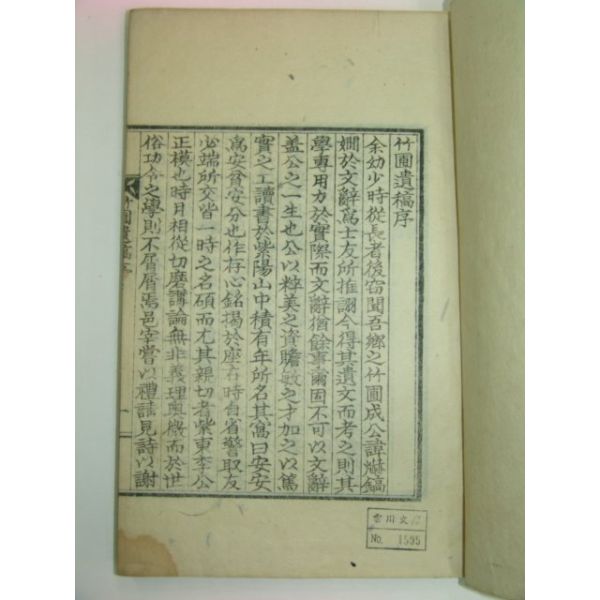 竹圃遺稿序
余幼少時從長者後窃聞吾鄉之竹圃成公諱爀鎬
嫺於文辭爲士友所推詡今得其遺文而考之則其
學專用力於實際而文辭猶餘事爾固不可以文辭
盖公之一生也公以粹美之資贍敏之才加之以篤
實之工讀書於紫陽山中積有年所名其寓曰安安
寓安貧安分也作存心銘揭於座右時自省警取友
必端所交皆一時之名碩而尤其親切者紫東李公
正模也時月相從切磨講論無非義理奧厳而於世
俗功令之學則不屑屑焉邑宰嘗以禮請見詩以謝
竹圃遺稿序
一
雲川文
No. 1595